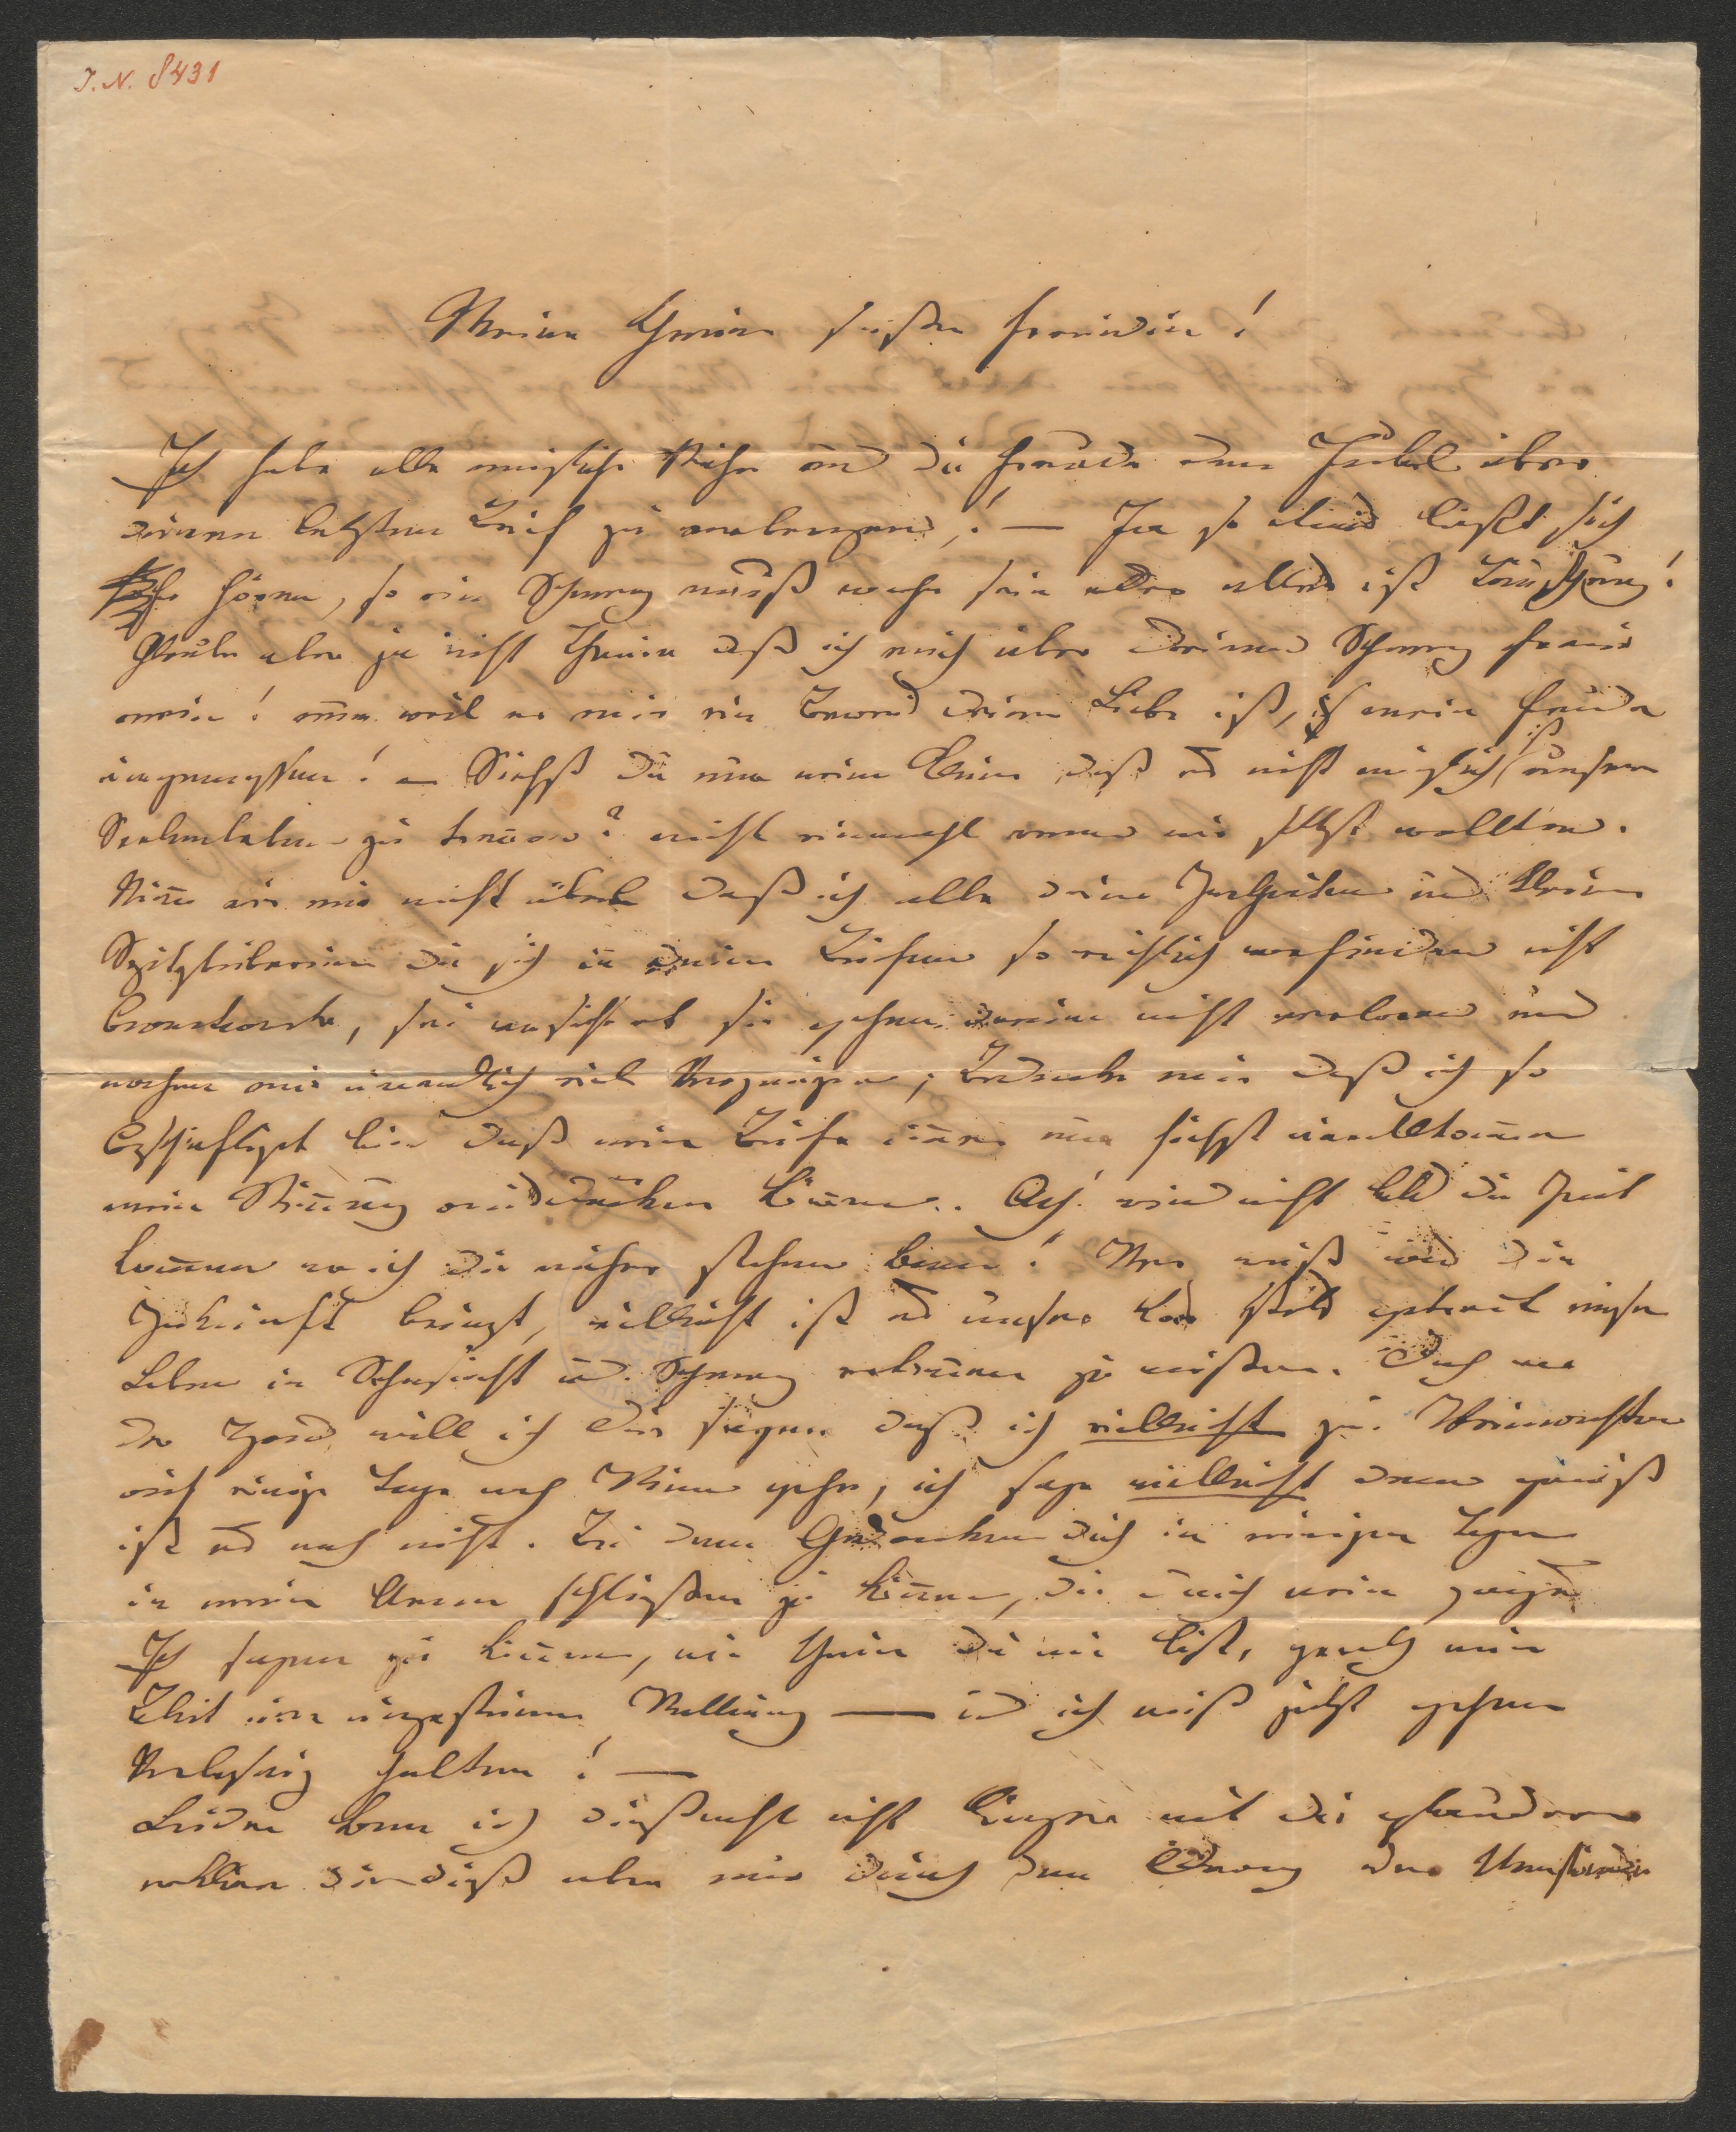 I. N. 8431
Meine theure süße Freundin!
Ich habe alle mögliche Mühe um die Freude den Jubel über
deinen letzten Brief zu verbergen! — Ja so etwas läßt sich
hören, so ein Schmerz muß wahr sein oder alles ist Täuschung!
Glaube aber ja nicht Theure daß ich mich über deinen Schmerz freue
nein! nur weil er mir ein Beweis deiner Liebe ist, ist meine Freude
angemessen! — Siehst du nun meine daß es nicht möglich ist unser
Seelenleben zu trennen? nicht einmahl wenn wir selbst wollten.
Nim es mir nicht übel daß ich alle deine und kleine
die sich in deinen Briefen so reichlich vorfinden nicht
beantworte, sei versichert sie gehen darum nicht verloren und
machen mir unendlich viel Vergnügen; Bedenke nur daß ich so
beschäftiget bin daß meine Briefe immer nur höchst unvollkommen
meine Meinung ausdrücken können. Ach! wird nicht bald die Zeit
kommen wo ich dir näher stehen kann! Wer weiß was die
Zukunft bringt, vielleicht ist es unser Loos stets getrennt unser
Leben in Sehnsucht u. Schmerz verbringen zu müssen. Doch
will ich dir sagen daß ich vielleicht zu Weinachten
auf einige Tage nach Wien gehe, ich sage vielleicht denn gewiß
ist es noch nicht. Bei dem Gedanken dich in einigen Tagen
in meine Arme schließen zu können, dir durch mein ganzes
Ich sagen zu können, wie theuer du mir bist, geräth mein
Blut in ungestüme Wallung — und ich muß jetzt gehen
Vorlesung halten! —
Leider kann ich dießmahl nicht länger mit dir plaudern
erkläre dir dieß aber nur durch den Drang der Umstände